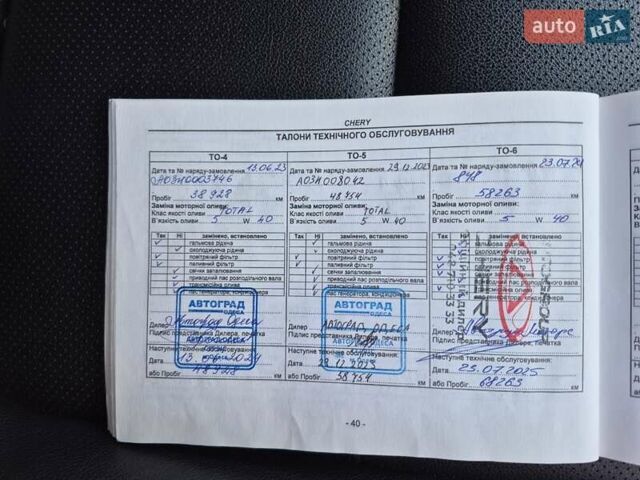 auto RIA
CHERY
ТАЛОНИ ТЕХНІЧНОГО ОБСЛУГОВУВАННЯ
ТО-4
Дата та № наряду-замовлення 13.06.23
Пробіг 38 928 км
Заміна моторної оливи:
Клас якості оливи TOTAL
В'язкість оливи 5 W 40
Так Ні замінено, встановлено
гальмова рідина
охолоджуюча рідина
повітряний фільтр
паливний фільтр
свічки запалювання
приводний пас розподільчого вала
трансмісійна олива
АВТОГРАД
ОДЕСА
Дилер Автоград Одеса
Підпис представника Дилера, печатка
Наступне технічне обслуговування:
Дата
або Пробіг 48928 км
ТО-5
Дата та № наряду-замовлення 29.12.2023
Пробіг 48754 км
Заміна моторної оливи:
Клас якості оливи TOTAL
В'язкість оливи 5 W 40
Так Ні замінено, встановлено
гальмова рідина
охолоджуюча рідина
повітряний фільтр
паливний фільтр
свічки запалювання
приводний пас розподільного вала
трансмісійна олива
пас генератора, кондиціонера
АВТОГРАД
ОДЕСА
Дилер АВТОГРАД ОДЕСА
Підпис представника Дилера, печатка
Наступне технічне обслуговування:
Дата 29.12.2023
або Пробіг 58754 км
ТО-6
Дата та № наряду-замовлення 23.07.24
848
Пробіг 58263 км
Заміна моторної оливи:
Клас якості оливи TOTAL
В'язкість оливи 5 W 40
Так Ні замінено, встановлено
гальмова рідина
охолоджуюча рідина
повітряний фільтр
паливний фільтр
свічки запалювання
Дилер
Підпис представника Дилера, печатка
Наступне технічне обслуговування:
Дата 23.07.2025
або Пробіг 68263 км
- 40 -